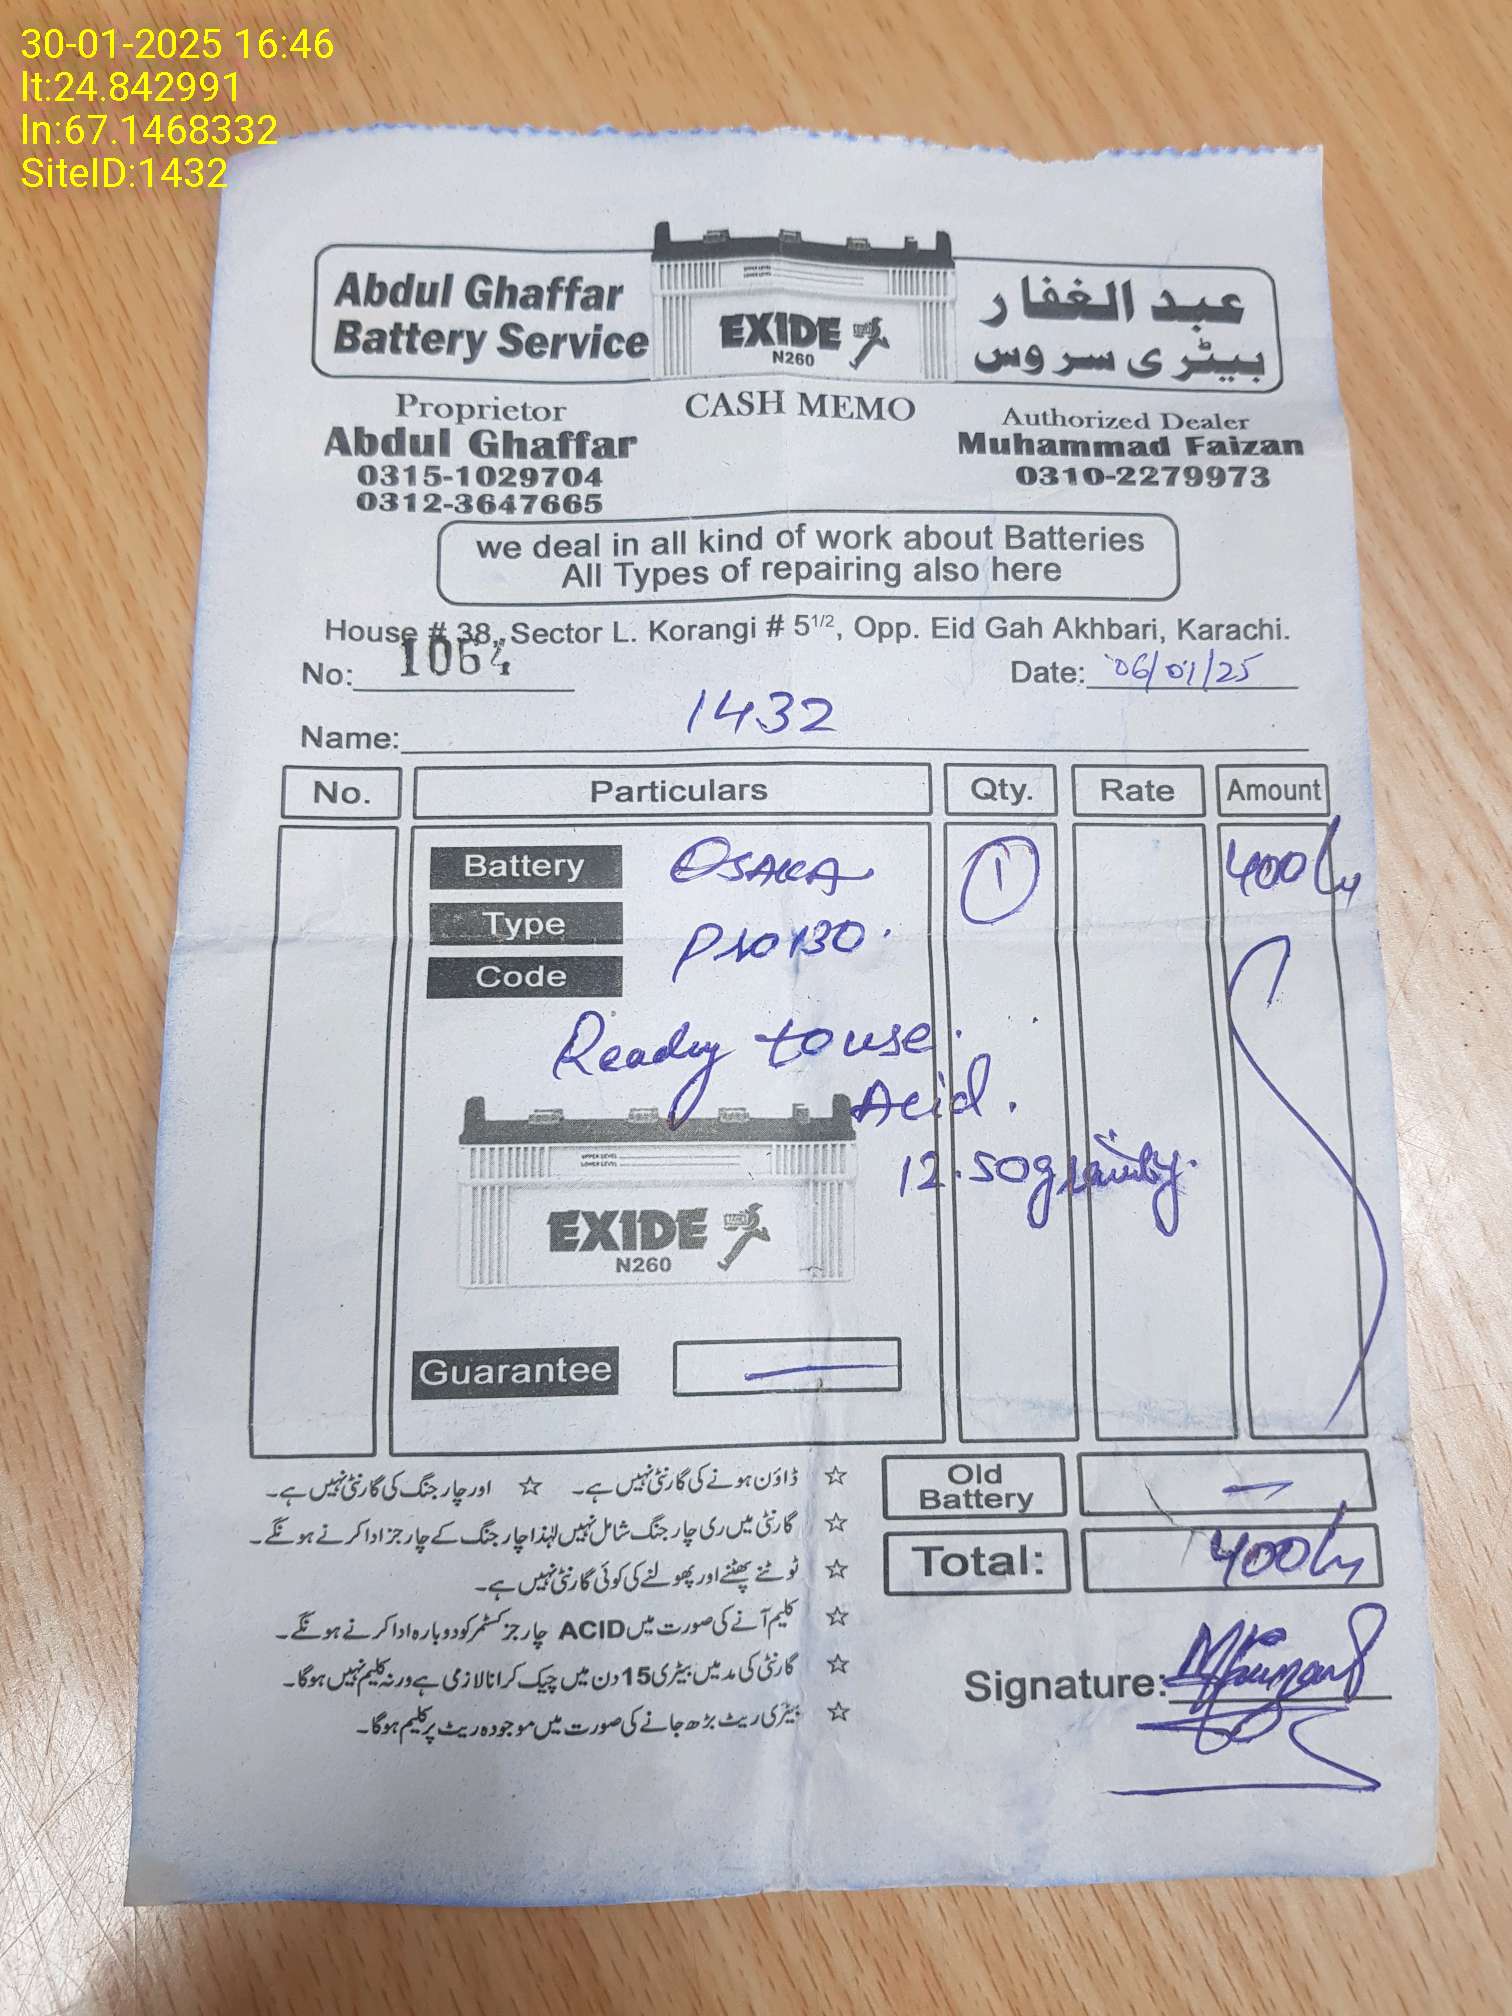 30-01-2025 16:46
lt:24.842991
ln:67.1468332
SiteID:1432
Abdul Ghaffar
Battery Service
EXIDE
N260
عبد الغفار
بیٹری سروس
Proprietor
Abdul Ghaffar
0315-1029704
0312-3647665
CASH MEMO
Authorized Dealer
Muhammad Faizan
0310-2279973
we deal in all kind of work about Batteries
All Types of repairing also here
House # 38, Sector L. Korangi # 5 1/2, Opp. Eid Gah Akhbari, Karachi.
No: 1064
Date: 06/01/25
Name: 1432
No. Particulars Qty. Rate Amount
Battery OSAKA 1 400/-
Type
Pro 130.
Code
Ready to use.
Acid.
12.50 gravity.
UPPER LEVEL
LOWER LEVEL
EXIDE
N260
Guarantee —
☆ ڈاؤن ہونے کی گارنٹی نہیں ہے۔ ☆ اور چارجنگ کی گارنٹی نہیں ہے۔
☆ گارنٹی میں ری چارجنگ شامل نہیں لہٰذا چارجنگ کے چارجز ادا کرنے ہونگے۔
☆ ٹوٹنے پھٹنے اور پھولنے کی کوئی گارنٹی نہیں ہے۔
☆ کلیم آنے کی صورت میں ACID چارجز کسٹمر کو دوبارہ ادا کرنے ہونگے۔
☆ گارنٹی کی مد میں بیٹری 15 دن میں چیک کرانا لازمی ہے ورنہ کلیم نہیں ہوگا۔
☆ بیٹری ریٹ بڑھ جانے کی صورت میں موجودہ ریٹ پر کلیم ہوگا۔
Old
Battery —
Total: 400/-
Signature: